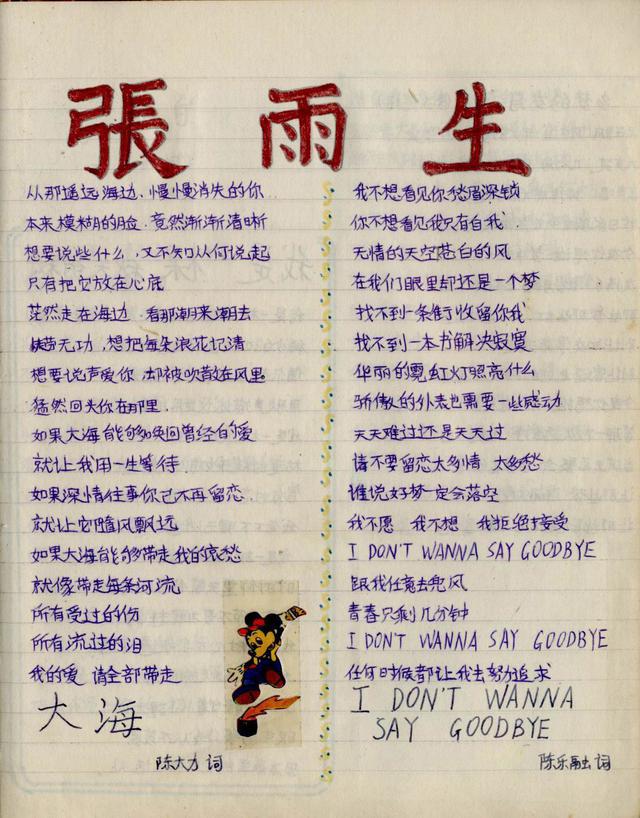 張雨生
从那遥远海边、慢慢消失的你
本来模糊的脸、竟然渐渐清晰
想要说些什么、又不知从何说起
只有把它放在心底
茫然走在海边、看那潮来潮去
徒劳无功，想把每朵浪花记清
想要说声爱你 却被吹散在风里
猛然回头你在那里
如果大海能够唤回曾经的爱
就让我用一生等待
如果深情往事你已不再留恋
就让它随风飘远
如果大海能够带走我的哀愁
就像带走每条河流
所有受过的伤
所有流过的泪
我的爱 请全部带走
大海
陈大力 词
我不想看见你愁眉深锁
你不想看见我只有自我
无情的天空苍白的风
在我们眼里却还是一个梦
找不到一条街收留你我
找不到一本书解决寂寞
华丽的霓虹灯照亮什么
骄傲的外表也需要一些感动
天天难过还是天天过
请不要留恋太多情 太多愁
谁说好梦一定会落空
我不愿 我不想 我拒绝接受
I DON'T WANNA SAY GOODBYE
跟我任意去兜风
青春只剩几分钟
I DON'T WANNA SAY GOODBYE
任何时候都让我去努力追求
I DON'T WANNA
SAY GOODBYE
陈乐融 词